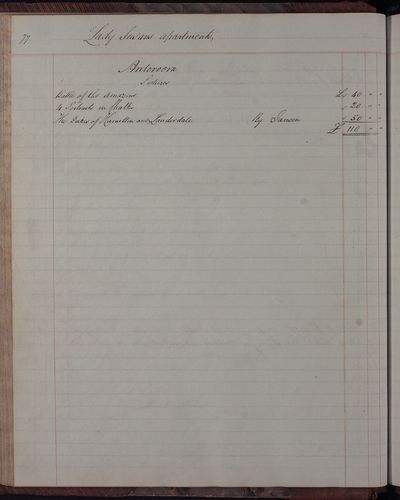 77 Lady Susans apartments,
Anteroom
Pictures
Battle of the Amazons £ 40 " "
4 Portraits in Chalk " 20 " "
The Dukes of Hamilton and Lauderdale By Jansen " 50 " "
£ 110 " "